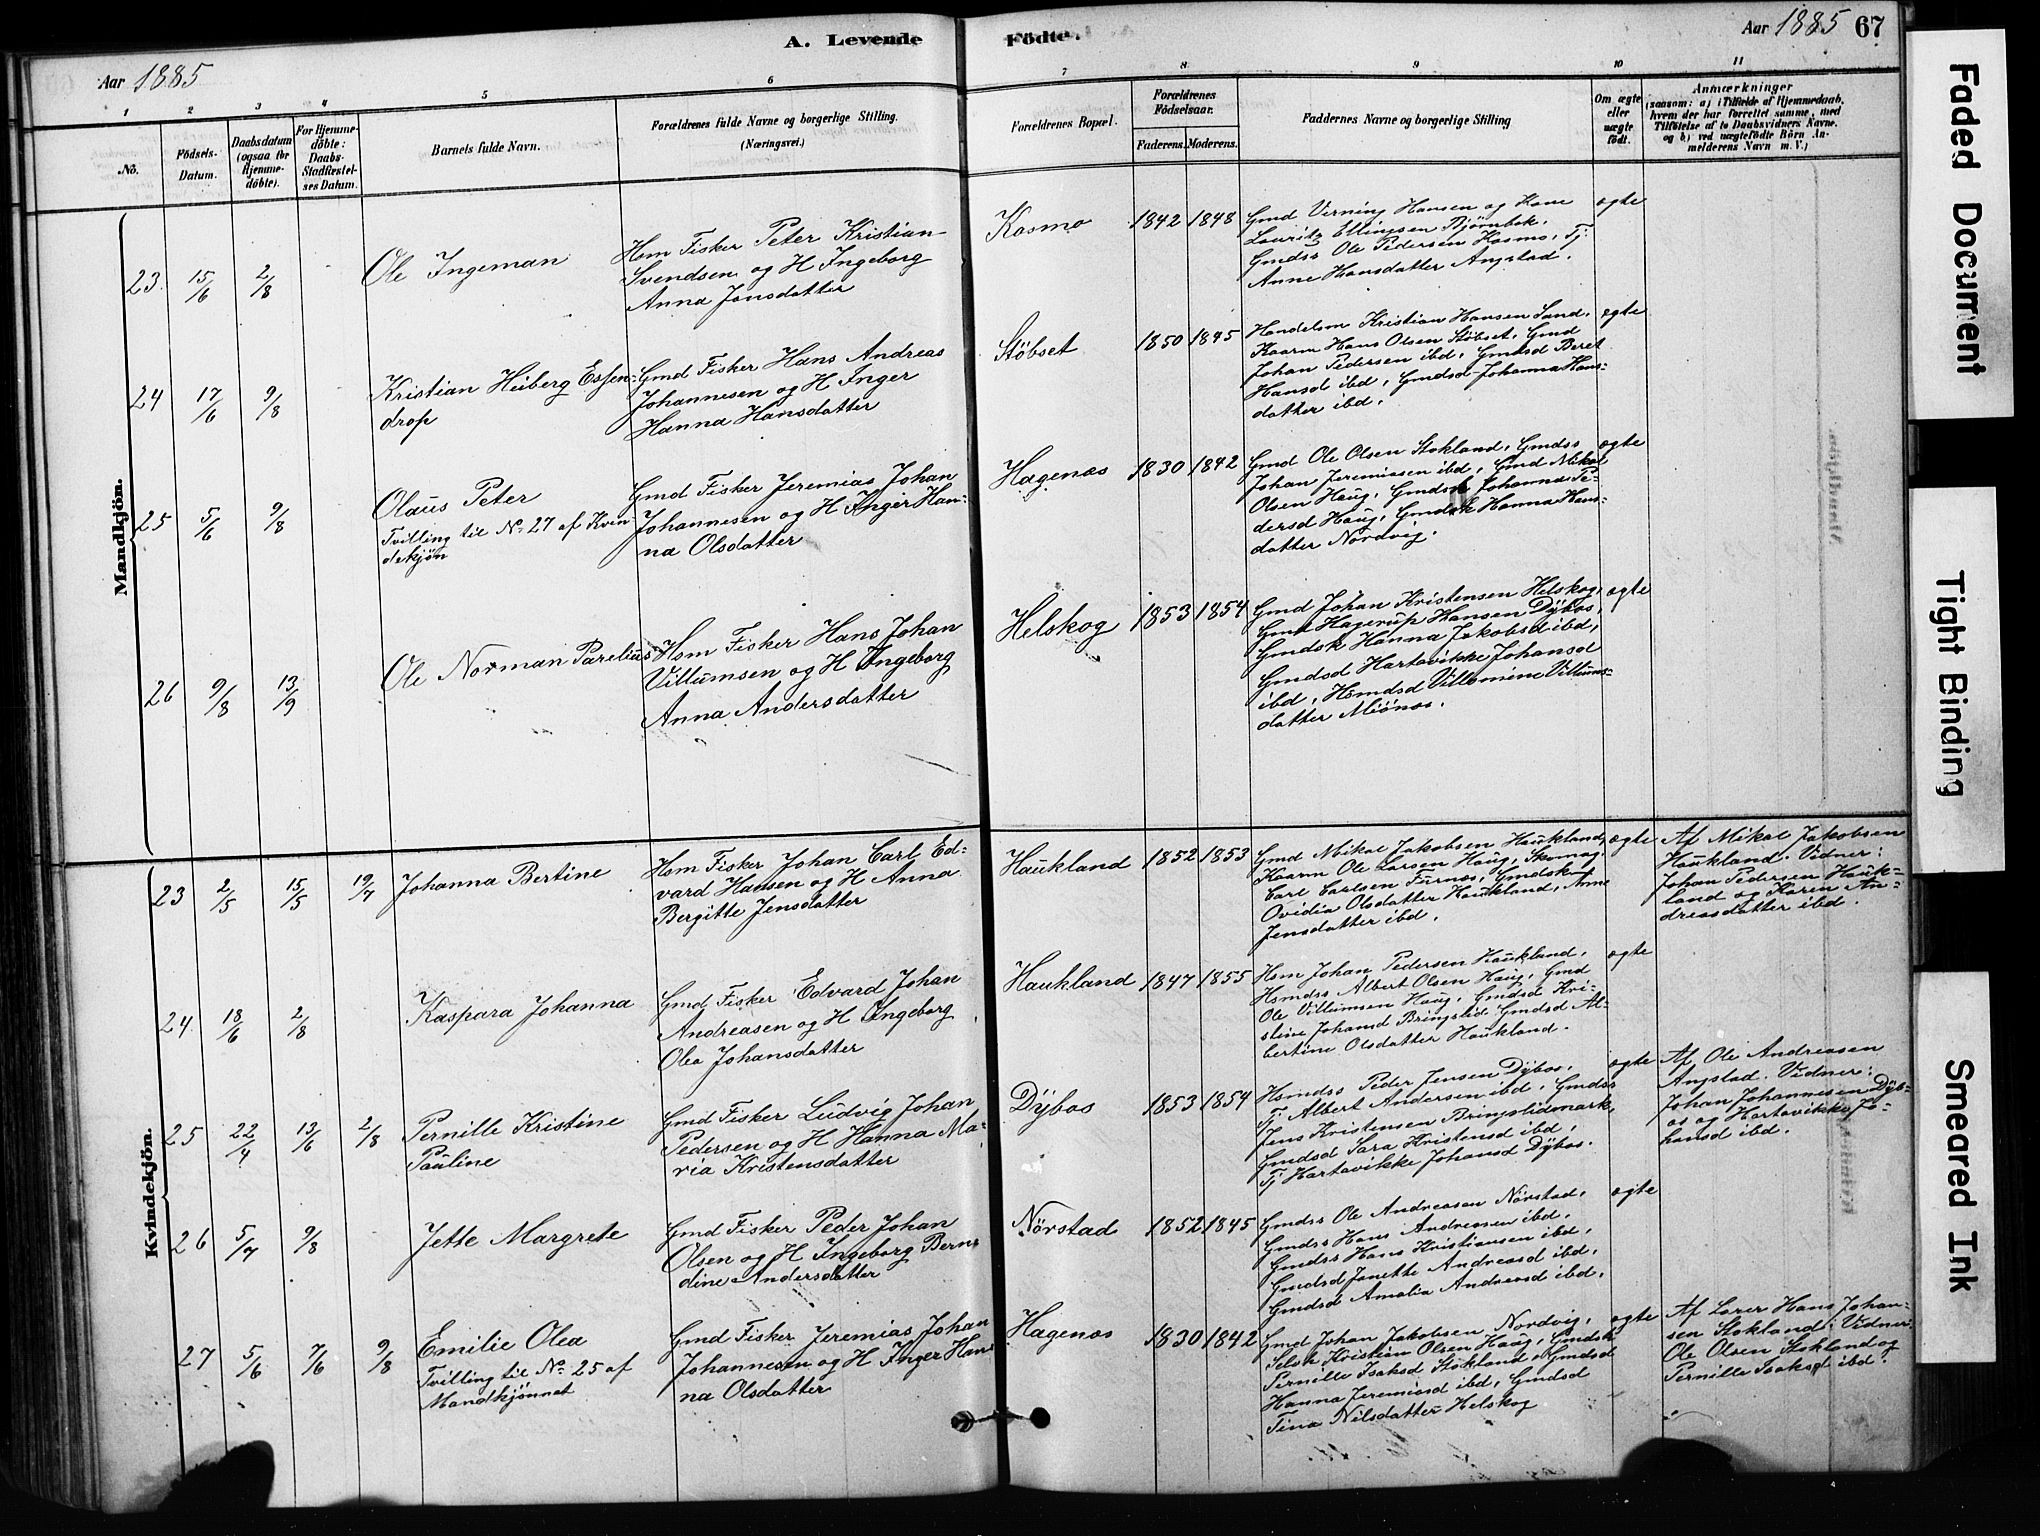 A. Levende Födte.
Aar 1885
Aar 1885 67
1 2 3 4 5 6 7 8 9 10 11
No.
Födsels-Datum.
Daabsdatum (ogsaa for Hjemmedöbte).
For Hjemmedöbte: Daabs-Stadfæstelses Datum.
Barnets fulde Navn.
Forældrenes fulde Navne og borgerlige Stilling.
(Næringsvei.)
Forældrenes Bopæl.
Forældrenes Födselsaar.
Faderens. Moderens.
Faddernes Navne og borgerlige Stilling
Om ægte eller uægte födt.
Anmærkninger
(saasom: a) i Tilfælde af Hjemmedaab,
hvem der har forrettet samme, med
Tilföielse af to Daabsvidners Navne,
og b) ved uægtefödte Börn An-
melderens Navn m. V.)
Mandkjön.
23 15/6 2/8
Ole Ingeman
Hsm Fisker Peter Kristian
Svendsen og H Ingeborg
Anna Jonsdatter
Kosmo 1842 1848
Gmd Verning Hansen og Kone
Laurits Ellingsen Bjørnbak,
Gmdss Ole Pedersen Kosmo, Tj.
Anne Hansdatter Angstad.
ægte
24 17/6 9/8
Kristian Heiberg Essen-
drop
Gmd Fisker Hans Andreas
Johannesen og H Inger
Hanna Hansdatter
Støbset 1850 1845
Handelsm Kristian Hansen Sand,
Kaarm Hans Olsen Støbset, Gmd
Johan Pedersen ibd, Gmdsd Beret
Hansd ibd, Gmdsd Johanna Hans-
datter ibd.
ægte
25 5/6 9/8
Olaus Peter
Tvilling til No 27 af Kvin-
dekjøn
Gmd Fisker Jeremias Johan
Johannesen og H Inger Han-
na Olsdatter
Hagenæs 1830 1842
Gmd Ole Olsen Stokland, Gmdss
Johan Jeremiasen ibd, Gmd Mikal
Olsen Haug, Gmdsk Johanna Pe-
dersd Haug, Gmdsk Hanna Hans-
datter Nordvig.
ægte
26 9/8 13/9
Ole Norman Parelius
Hsm Fisker Hans Johan
Villumsen og H Ingeborg
Anna Andersdatter
Helskog 1853 1854
Gmd Johan Kristensen Helskog,
Gmd Hagerup Hansen Dybos,
Gmdsk Hanna Jakobsd ibd,
Gmdsd Hartavikke Johansd
ibd, Hsmdsd Villomine Villums-
datter Miönes.
ægte
Kvindekjön.
23 2/5 15/5 19/7
Johanna Bertine
Hsm Fisker Johan Carl Ed-
vard Hansen og H Anna
Bergitte Jensdatter
Haukland 1852 1853
Gmd Mikal Jakobsen Haukland,
Kaarm Ole Larsen Haug, Skomag.
Carl Carlsen Furnes, Gmdsk
Ovidia Olsdatter Haukland, Anne
Jensdatter ibd.
ægte
Af Mikal Jakobsen
Haukland. Vidner:
Johan Pedersen Hauk-
land og Karen An-
dreasdatter ibd.
24 18/6 2/8
Kaspara Johanna
Gmd Fisker Edvard Johan
Andreasen og H Ingeborg
Olea Johansdatter
Haukland 1847 1855
Hsm Johan Pedersen Haukland,
Hsmdss Albert Olsen Haug, Gmd
Ole Villumsen Haug, Gmdsd Kri-
stine Johansd Bringslid, Gmdsd Al-
bertine Olsdatter Haukland.
ægte
25 22/4 13/6 2/8
Pernille Kristine
Pauline
Gmd Fisker Ludvig Johan
Pedersen og H Hanna Ma-
ria Kristensdatter
Dybos 1853 1854
Hsmdss Peder Jensen Dybos,
Tj Albert Andersen ibd, Gmdss
Jens Kristensen Bringslidmark,
Gmdsd Sara Kristensd ibd,
Tj Hartavikke Johansd Dybos.
ægte
Af Ole Andreasen
Angstad. Vidner:
Johan Johannesen Dyb-
os og Hartavikke Jo-
hansd ibd.
26 5/7 9/8
Jette Margrete
Gmd Fisker Peder Johan
Olsen og H Ingeborg Bern-
dine Andersdatter
Nørstad 1852 1845
Gmdss Ole Andreasen Nørstad,
Gmdss Hans Andreasen ibd,
Gmdss Hans Kristiansen ibd,
Gmdsd Janette Andreasd ibd,
Gmdsd Amalia Andreasd ibd.
ægte
27 5/6 7/6 9/8
Emilie Olea
Tvilling til No 25 af
Mandkjønnet
Gmd Fisker Jeremias Johan
Johannesen og H Inger Han-
na Olsdatter
Hagenæs 1830 1842
Gmd Johan Jakobsen Nordvig,
Selvs Kristian Olsen Haug, Gmdsk
Pernille Isaksd Stokland, Gmdsd
Hanna Jeremiasd ibd, Gmdsd
Tina Nilsdatter Helskog
ægte
Af Lærer Hans Johan-
sen Stokland; Vidner:
Ole Olsen Stokland og
Pernille Isaksd ibd.
Faded Document
Tight Binding
Smeared Ink